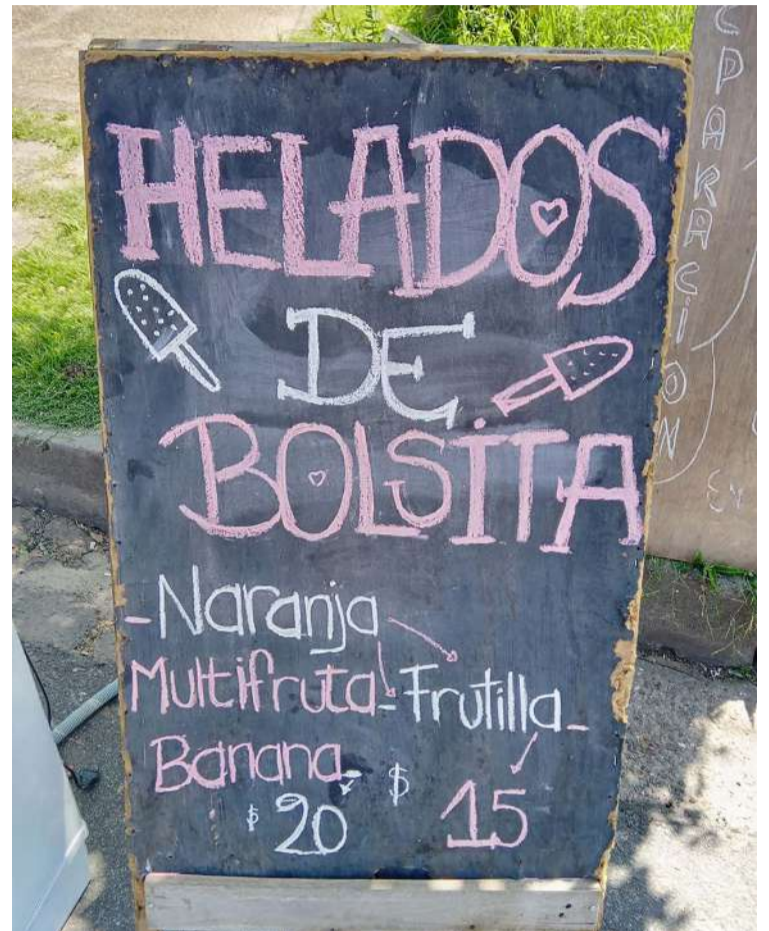 HELADOS
DE
BOLSITA
-Naranja
Multifruta-Frutilla-
Banana-
$ 20 $ 15
PARACIÓN